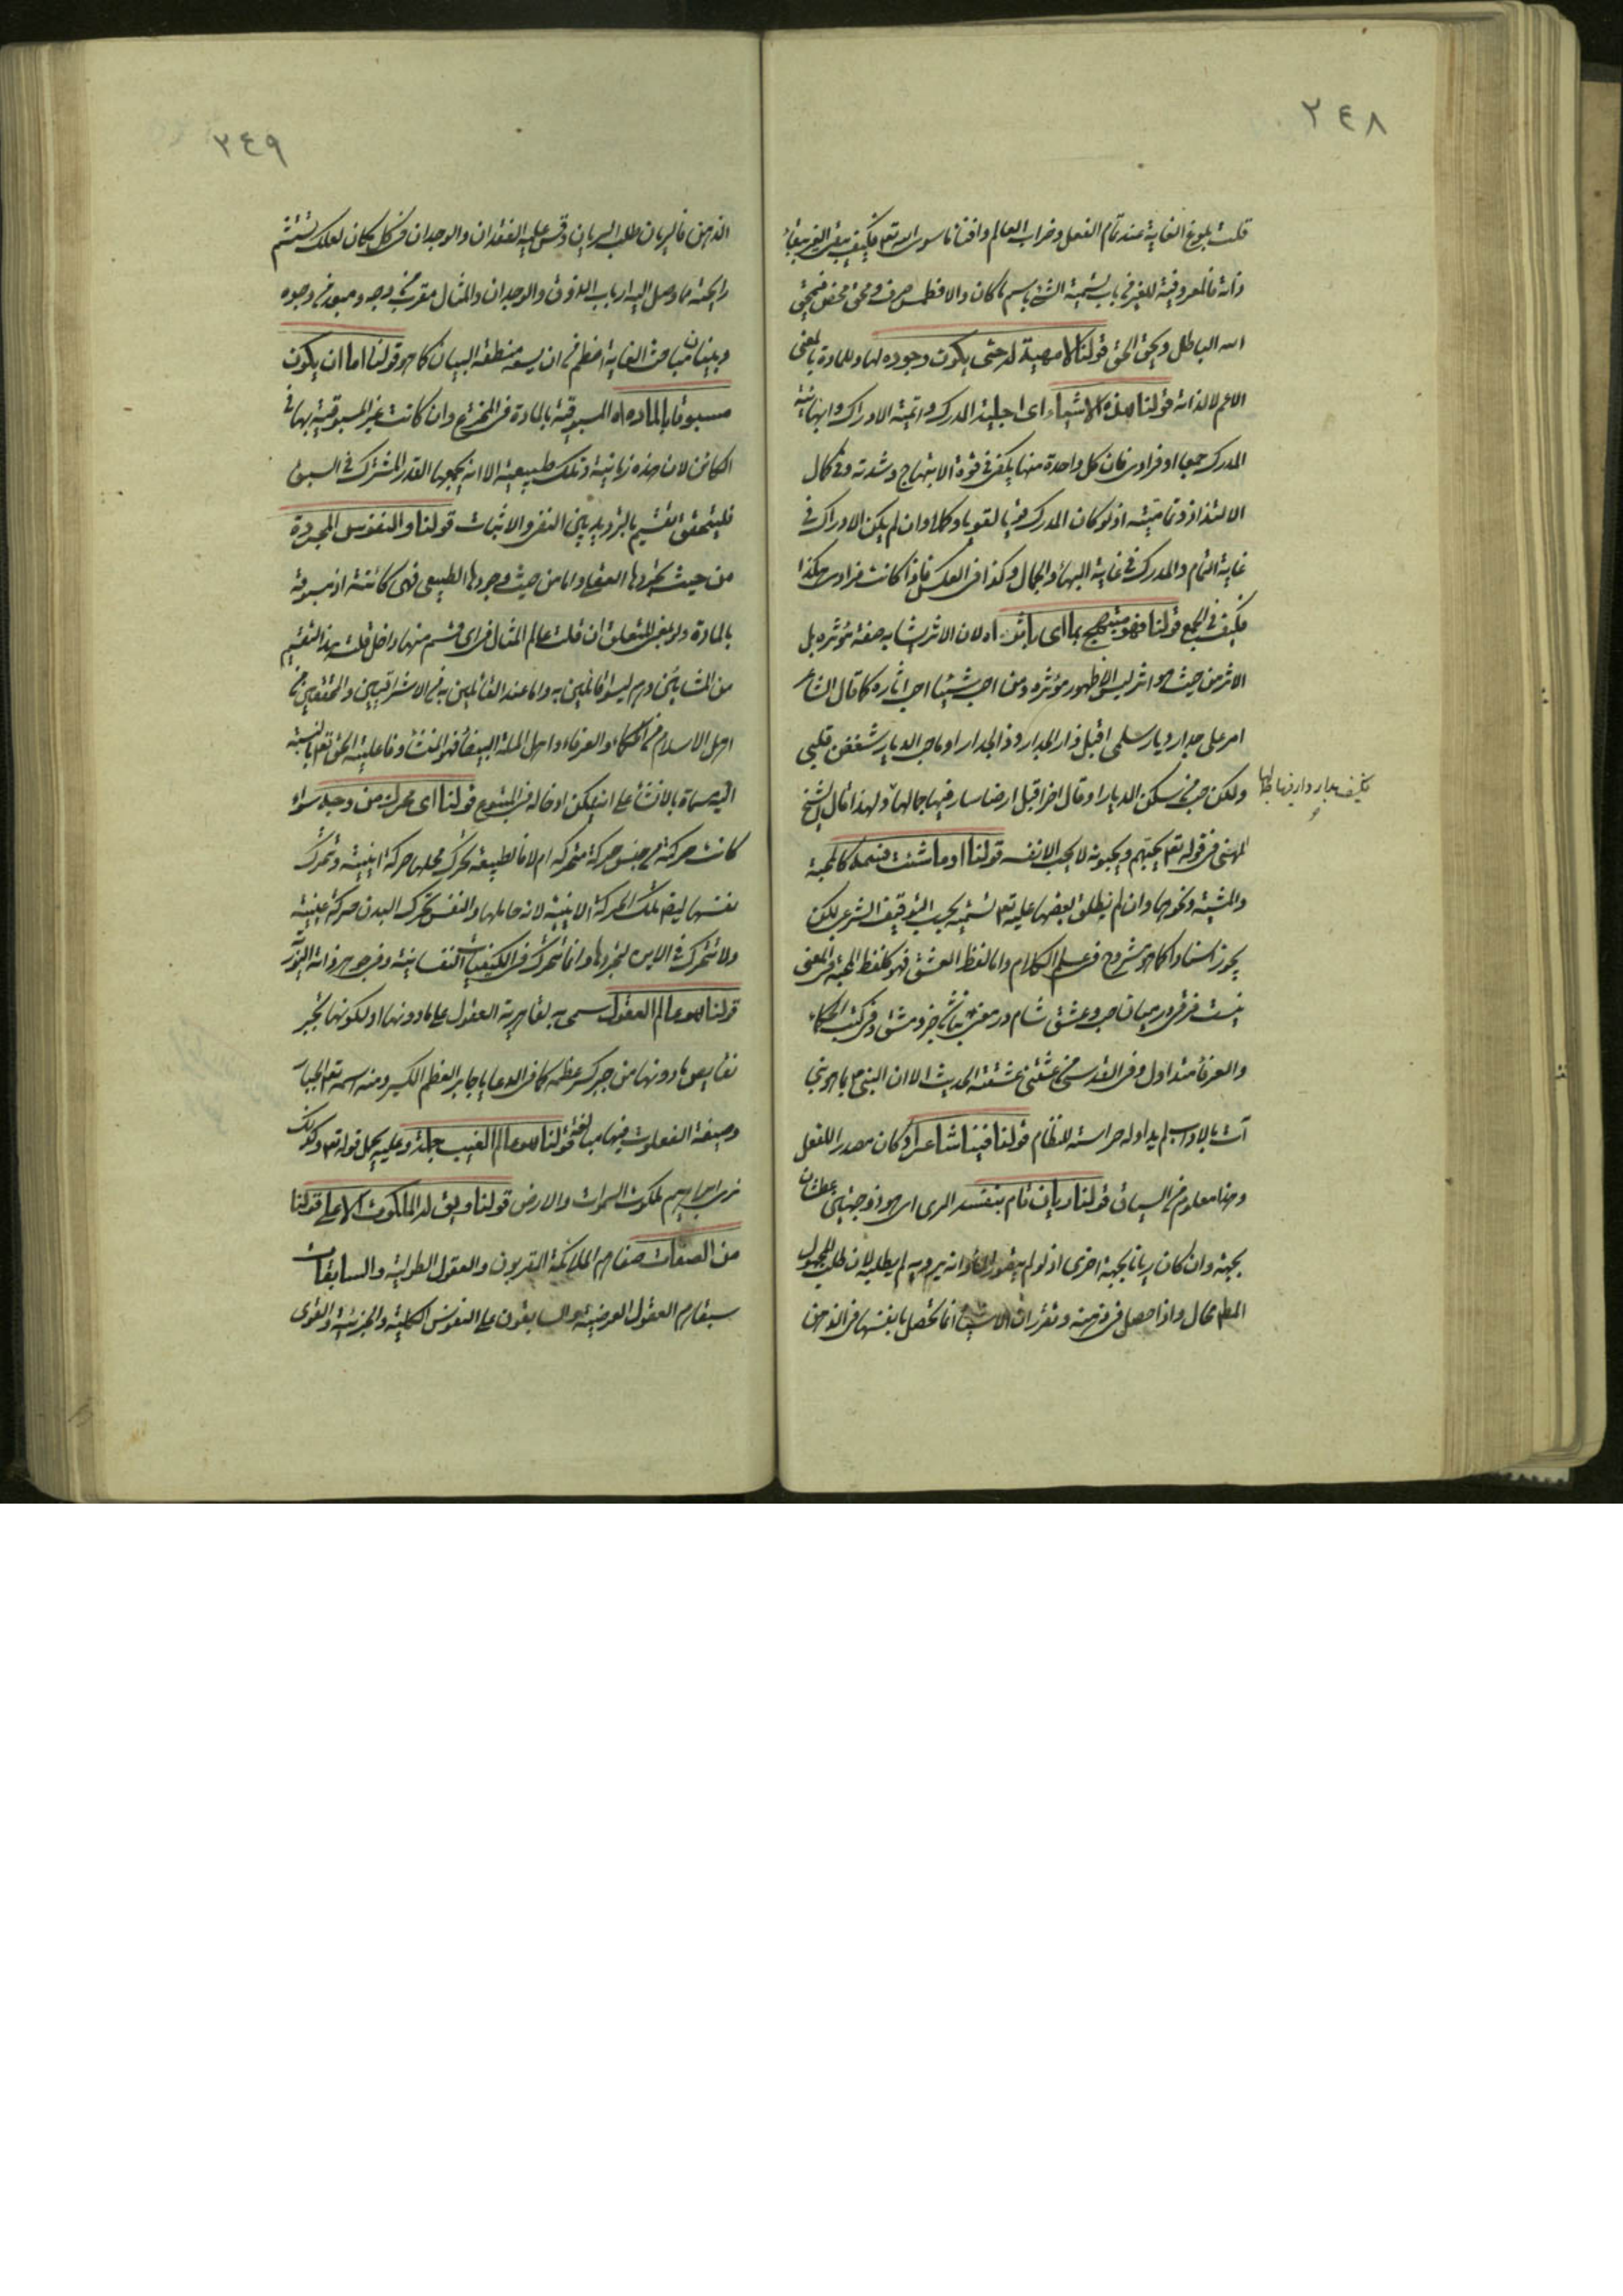 ٢٤٨
قلت بلوغ الغاية عند تمام الفعل وخراب العالم وافناء ما سوى الله تعم فكيف يبقى الغير ببقاء
ذاته فالمعروفية للغير في باب تسمية الشئ باسم ما كان والا فطمس صرف ومحق محض فيمحق
الله الباطل ويحق الحق قولنا لا مهية له حتى يكون وجوده لها وللمادة بالمعنى
الاعم لا لذاته قولنا هذه الاشياء اى اجلية المدرك واتمية الادراك وابهائية
المدرك جمعا او فرادى فان كل واحدة منها يكفى في قوة الابتهاج وشدته وفى كمال
الالتذاذ وتماميته اذ لو كان المدرك قويا لقويا وكاملا وان لم يكن الادراك في
غاية التمام والمدرك في غاية البهاء والجمال وكذا في العكس فاذا كانت فرادى هكذا
فكيف في الجمع قولنا فهو مبتهج بها اى باثره اه لان الاثر يشابه صفة مؤثره بل
الاثر من حيث هو اثر ليس الا ظهور مؤثره ومن احب شيئا احب آثاره كما قال الشاعر
امر على جدار ديار سلمى اقبل ذا الجدار وذا الجدارا وما حب الديار شغفن قلبى
ولكن حب من سكن الديارا وقال اخر اقبل ارضا سار فيها جمالها ولهذا قال الشيخ
فكيف بدار دار فيها جمالها
المهنى في قوله تعم يحبهم ويحبونه لا يحب الا نفسه قولنا او ما شئت فسمه كالمحبة
والمشية ونحوهما وان لم يطلق بعضها عليه تعم تسمية بحسب التوقيف الشرعى لكن
يجوز اسنادا كما هو مشروح في علم الكلام واما لفظ العشق فهو كلفظ المحبة في المعنى
نيست فرقى در ميان حب وعشق شام در معنى نباشد جز دمشق وفى كتب الحكماء
والعرفاء متداول وفى القدسى من عشقنى عشقته الحديث الا ان النبى ص بما هو نبى
آت بالآداب لم يداوله حراسة للنظام قولنا فينا شاعرا وكان مصدرا للفعل
وهنا معلوم من السياق قولنا ريان تام بنفسه الرى اى هو ذو جهتين عطشان
بجهة وان كان ريانا بجهة اخرى اذ لو لم يتصور الماء وانه يرويه لم يطلبه لان طلب المجهول
المطلق محال واذا حصل في ذهنه وتقرر ان الاشياء انما تحصل بانفسها في الذهن
٢٤٩
الذهن فالريان طلب الريان وقس عليه الفقدان والوجدان في كل مكان لعلك تستشم
رايحة ما وصل اليه ارباب الذوق والوجدان والمثال مقرب من وجه ومبعد من وجوه
وبيننا مباحث الغاية اعظم من ان يسعه منطقة البيان كما هو قولنا اما ان يكون
مسبوقا بالمادة اه المسبوقية بالمادة في المخترع وان كانت غير المسبوقية بها في
الكائن لان هذه زمانية وتلك طبيعية الا انه يجمعها القدر المشترك في السبق
فليتحقق التقسيم بالترديد بين النفى والاثبات قولنا والنفوس المجردة
من حيث تجردها العقلى واما من حيث وجودها الطبيعى فهى كائنة اذ مسبوقة
بالمادة ولو بمعنى المتعلق ان قلت عالم المثال في اى قسم منها داخل قلت هذا التقسيم
من المشائين وهم ليسوا قائلين به واما عند القائلين به من الاشراقيين والمحققين من
اهل الاسلام من الحكماء والعرفاء واهل الملة البيضاء فهو المنشأ وفاعلية الحق تعم بالنسبة
اليه مسماة بالانشاء على انه يمكن ادخاله في المبتدع قولنا اى محرك من وجه سواء
كانت حركته من جنس حركة متحركه ام لا فالطبيعة تحرك محلها حركة اينية وتحرك
نفسها ايضا بتلك الحركة الاينية لانه حاملها والنفس تحرك البدن حركة اينية
ولا تتحرك في الاين لتجردها وانما تتحرك في الكيفيات النفسانية وفى جوهر ذاته النورية
قولنا هو عالم العقول سمى به لقاهرية العقول على ما دونها او لكونها تجبر
نقايص ما دونها من جبر كسر عظمه كما في الدعا يا جابر العظم الكسير ومنه اسمه تعم الجبار
وصيغة الفعلوت فيها مبالغة قولنا هو عالم الغيب جملة وعليه يحمل قوله تعم وكذلك
نرى ابراهيم ملكوت السموات والارض قولنا ويق له الملكوت الاعلى قولنا
من الصفات صفا هم الملائكة المقربون والعقول الطولية والسابقات
سبقا هم العقول العرضية والسابقون على النفوس الكلية والجزئية والقوى